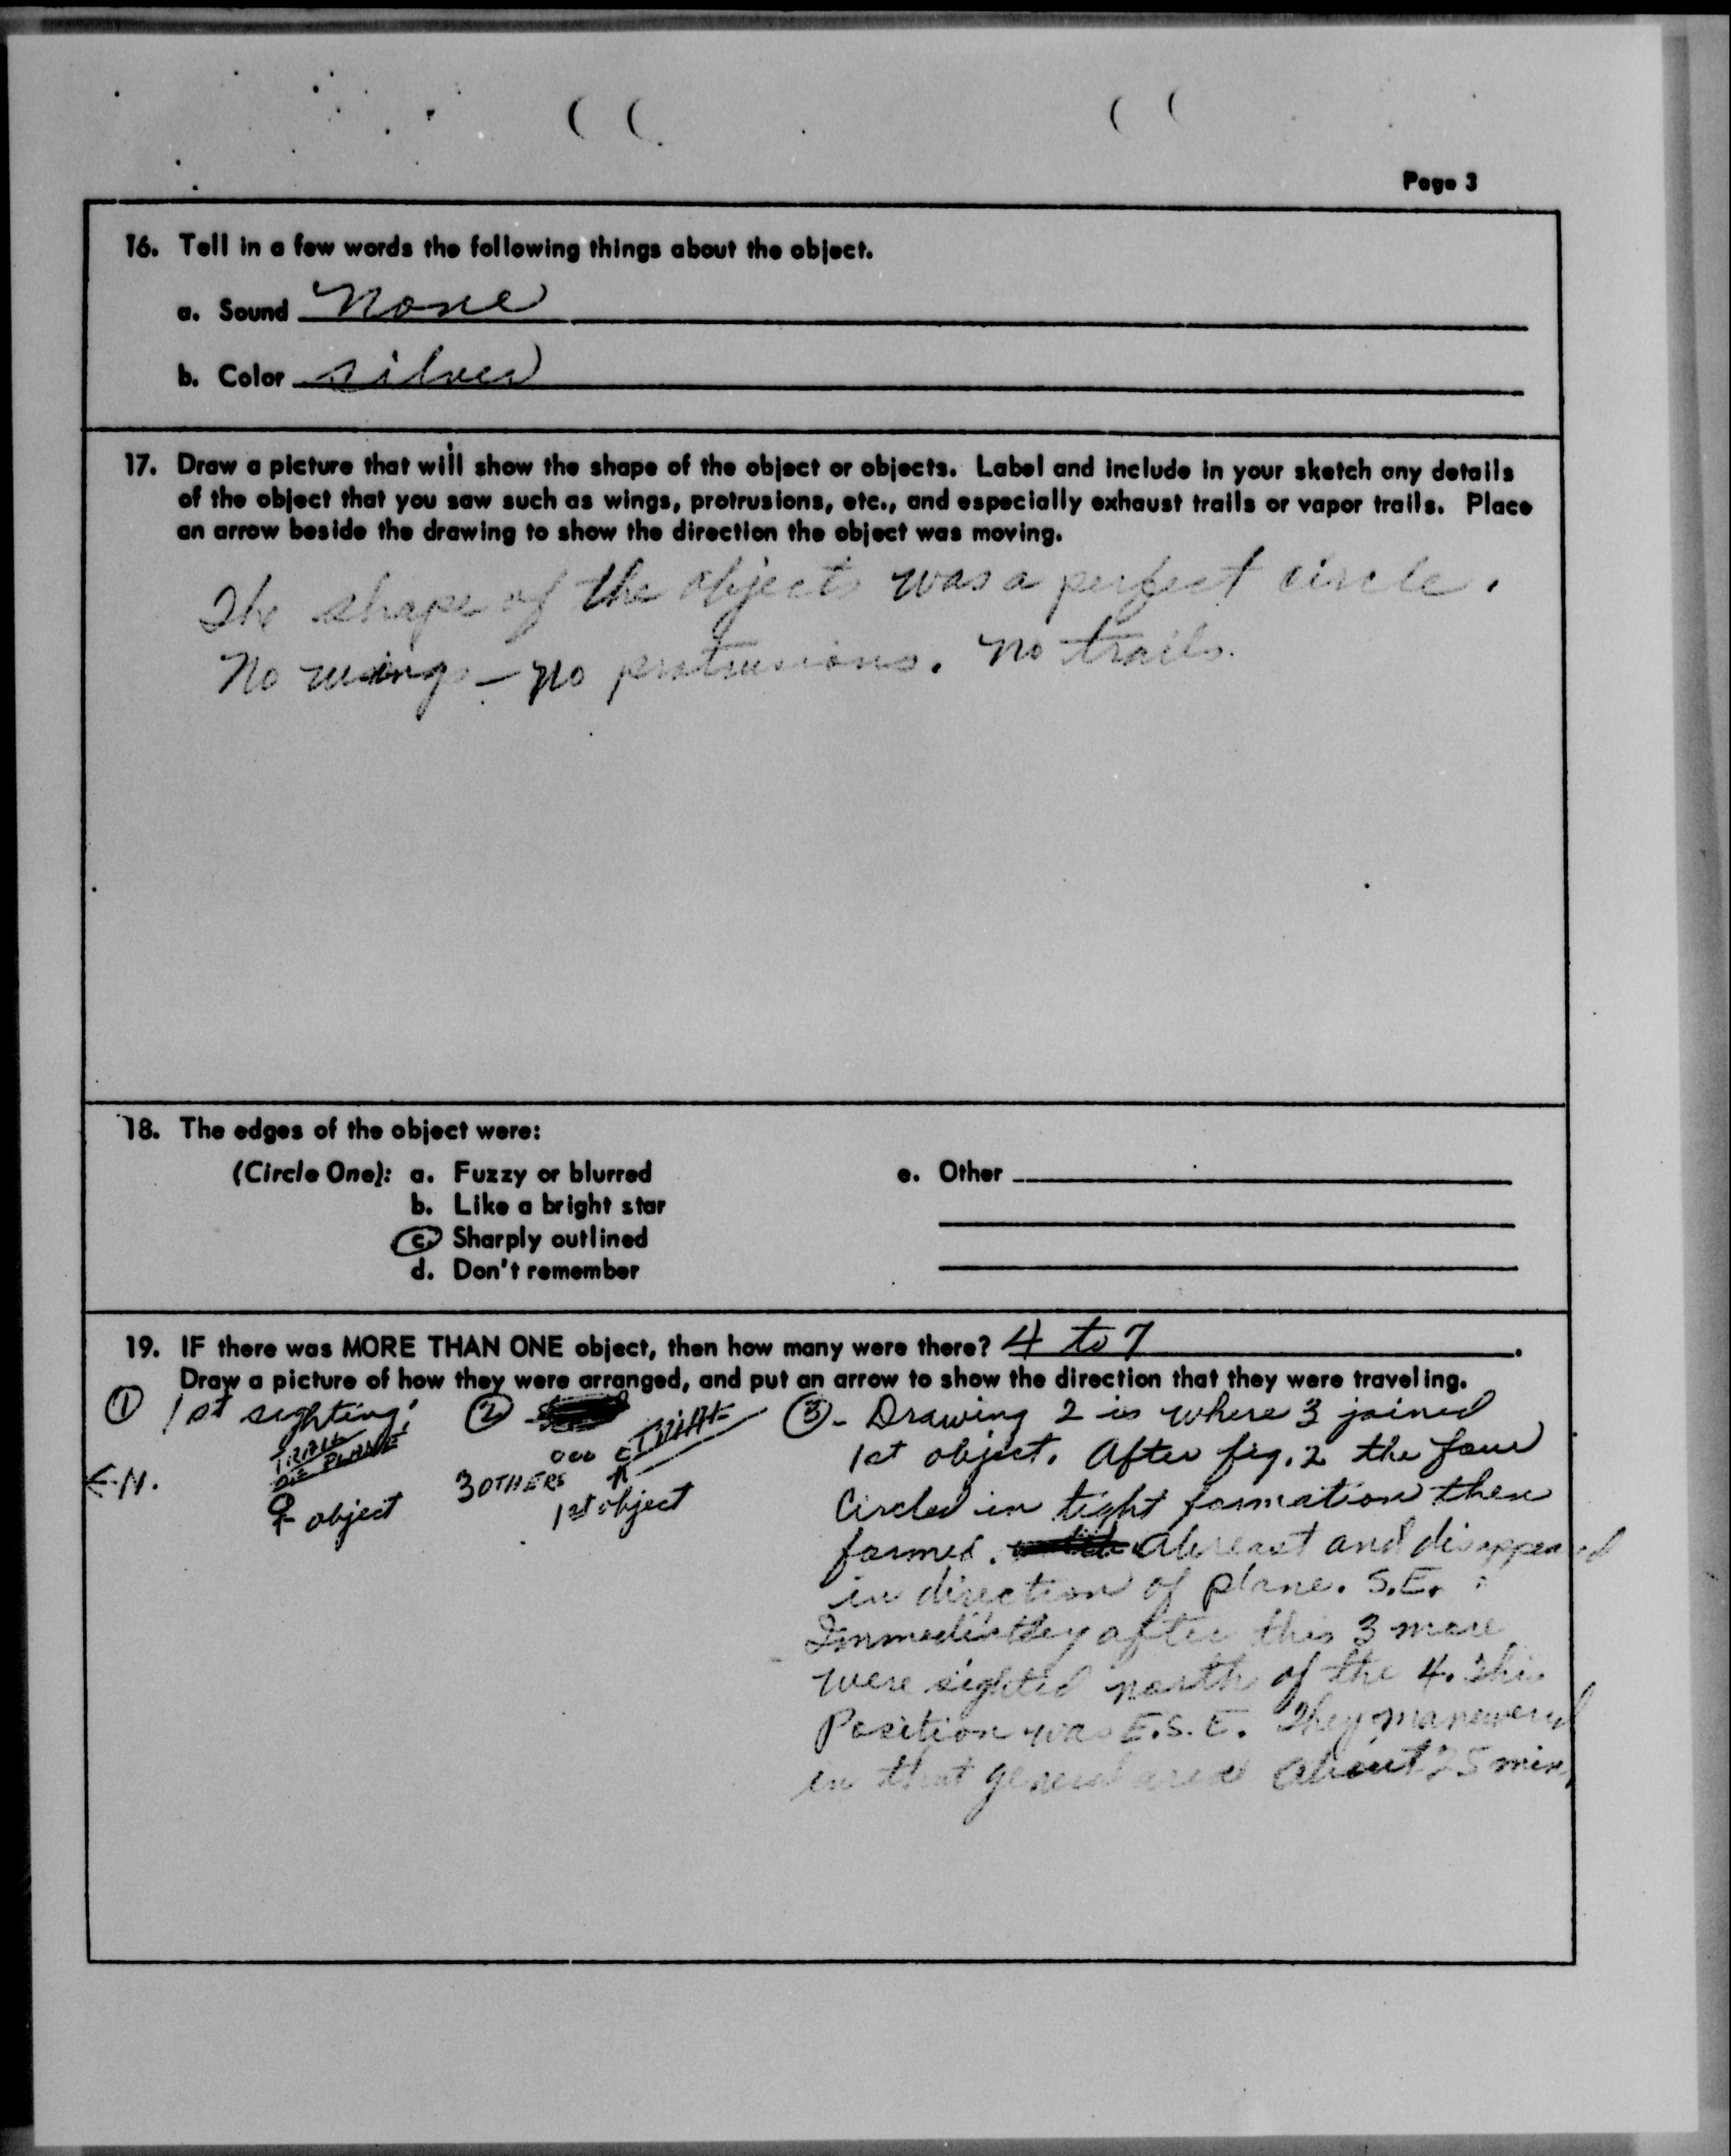 Page 3
16. Tell in a few words the following things about the object.
a. Sound None
b. Color silver
17. Draw a picture that will show the shape of the object or objects. Label and include in your sketch any details
of the object that you saw such as wings, protrusions, etc., and especially exhaust trails or vapor trails. Place
an arrow beside the drawing to show the direction the object was moving.
The shape of the objects was a perfect circle.
No wings - no protrusions. No trails.
18. The edges of the object were:
(Circle One): a. Fuzzy or blurred
b. Like a bright star
c. Sharply outlined
d. Don't remember
e. Other
19. IF there was MORE THAN ONE object, then how many were there? 4 to 7.
Draw a picture of how they were arranged, and put an arrow to show the direction that they were traveling.
① 1st sighting:
TRAIL
OF PLANE
← N.
object
②
TRAIL
3 OTHERS
1st object
③ - Drawing 2 is where 3 joined
1st object. After fig. 2 the four
Circled in tight formation then
formed. abreast and disappeared
in direction of plane. S.E.
Immediatley after this 3 more
were sighted north of the 4. This
Position was E.S.E. They maneuvered
in that general area about 25 min